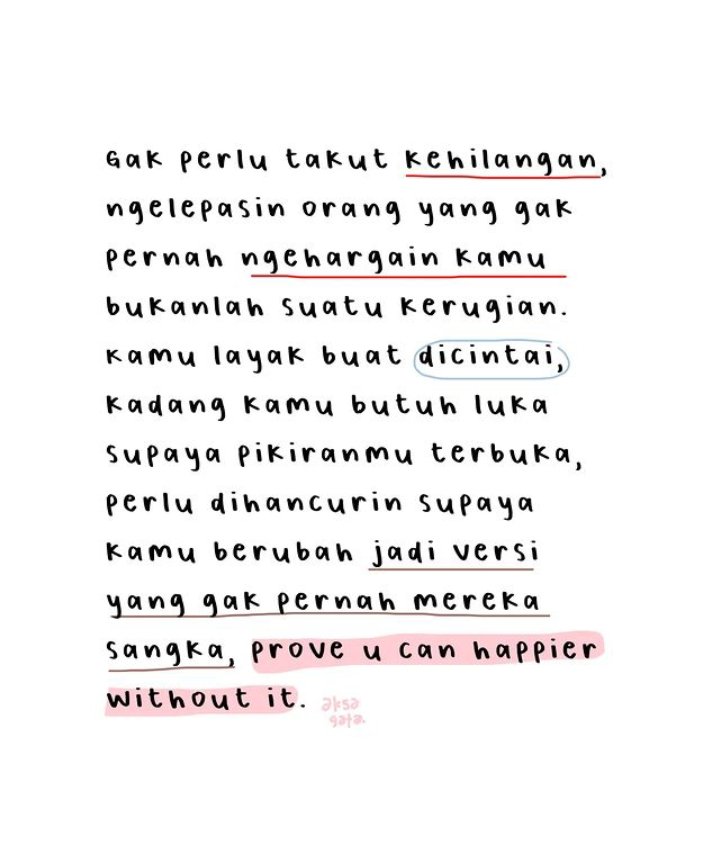 Gak perlu takut kehilangan,
ngelepasin orang yang gak
pernah ngehargain kamu
bukanlah suatu kerugian.
kamu layak buat dicintai,
kadang kamu butuh luka
supaya pikiranmu terbuka,
perlu dihancurin supaya
kamu berubah jadi versi
yang gak pernah mereka
sangka, prove u can happier
without it.
aksa
gata.